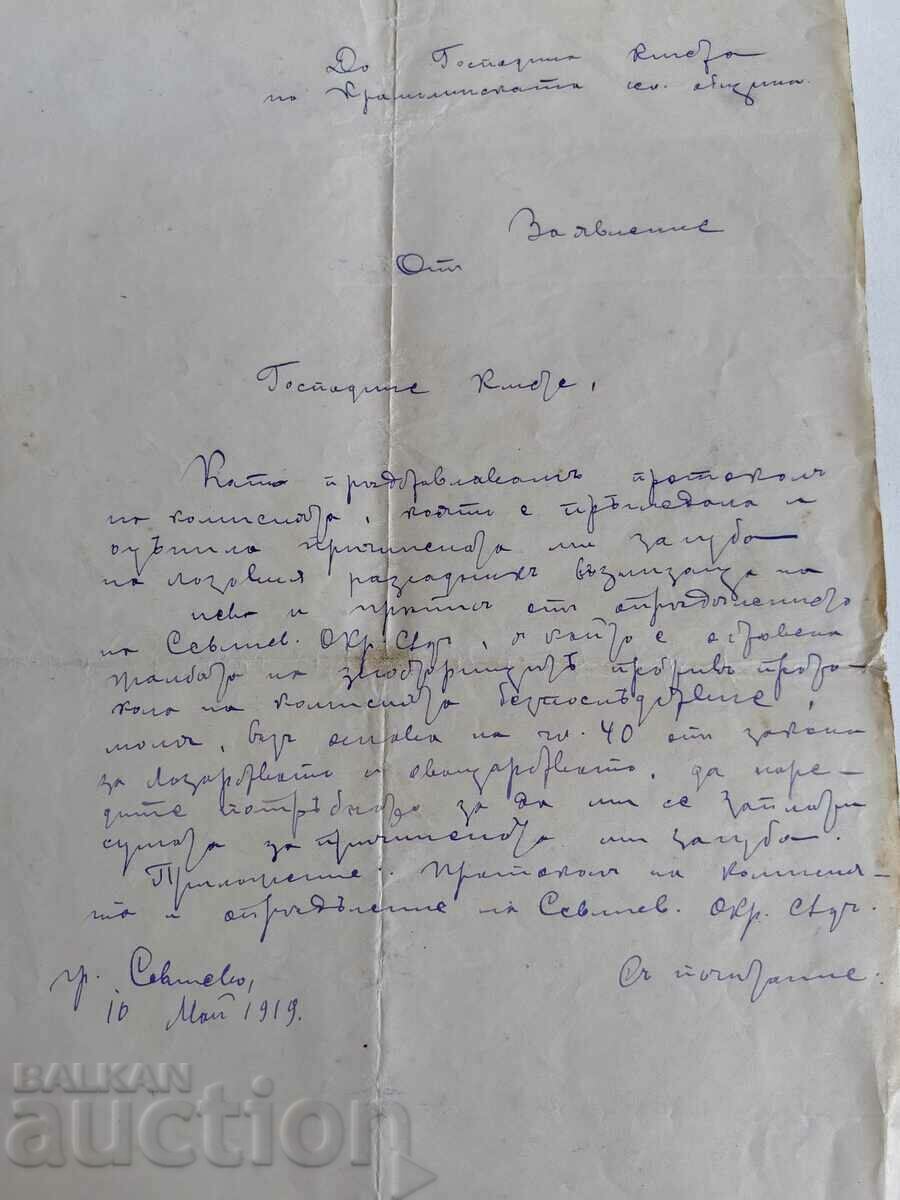 До Господина Кмета
на Крамолинската се. община.
Заявление
От
Господине Кмете,
Като пръдставлявамъ протоколъ
на комисията, която е пръгледала и
оцънила причинената ми загуба
на лозовия разсадникъ възлизаща на
лева и пръписъ отъ опръдълението
на Севлиев. Окр. Съдъ, с който е оставена
жалбата на противъ прото-
кола на комисията безпослъдствие,
моля, въз основа на чл. 40 отъ закона
за лозарството и овощарството, да наре-
дите потръбното за да ми се заплати
сумата за причинената ми загуба.
Приложение: Протоколъ на комисия-
та и опръдъление на Севлиев. Окр. Съдъ.
гр. Севлиево,
10 Май 1919.
Съ почитание:
BALKAN
auction